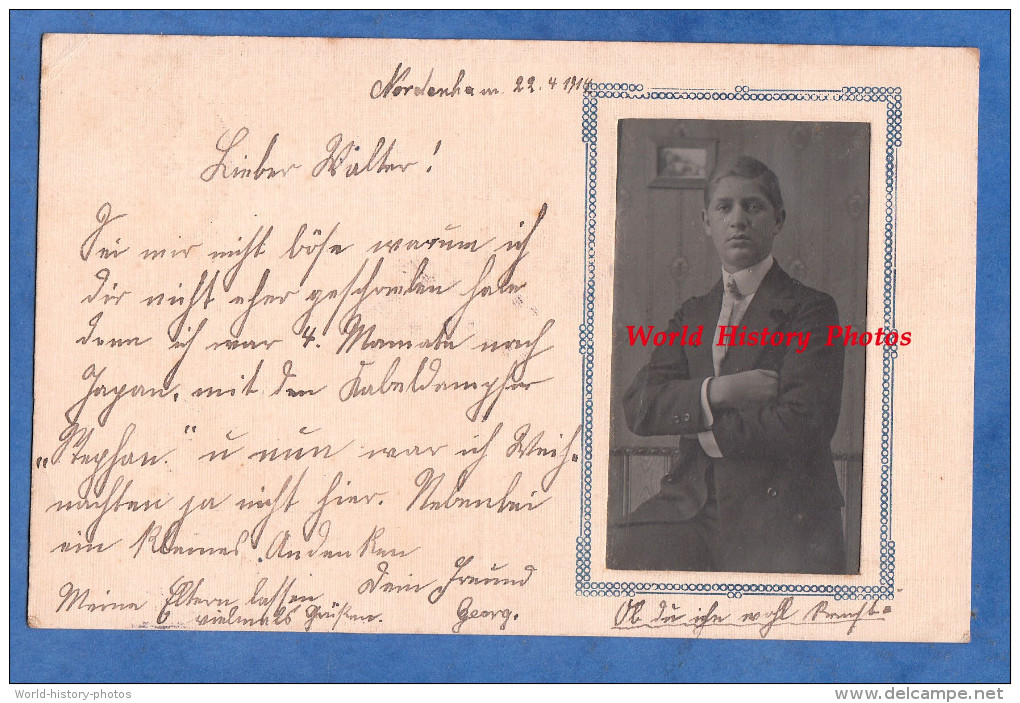 Nordenham. 22. 4 1914
Lieber Walter!
Sei mir nicht böse warum ich
dir nicht eher geschrieben habe
denn ich war 4. Monate nach
Japan, mit den Kabeldampfer
„Stephan." u nun war ich Weih-
nachten ja nicht hier. Nebenbei
ein kleines Andenken
Dein Freund
Georg.
Meine Eltern lassen
vielmals Grüßen.
Ob du ihn wohl
World History Photos
World-history-photos
http://www.delcampe.net